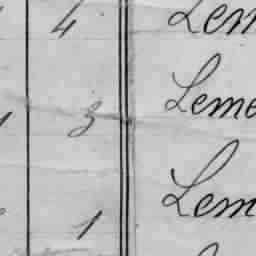 4 Lem
3 Leme
1 Lem